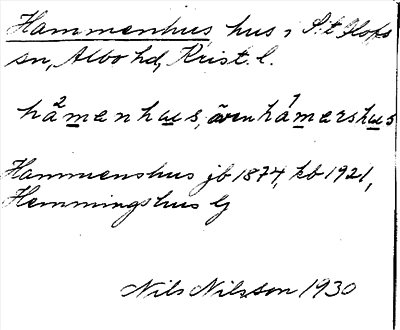 Hammenhus hus i S:t Olofs
sn, Albo hd, Krist. l.
hå²menhus, även hå¹mershus
Hammenshus jb 1874, kb 1921,
Hemmingshus G
Nils Nilsson 1930